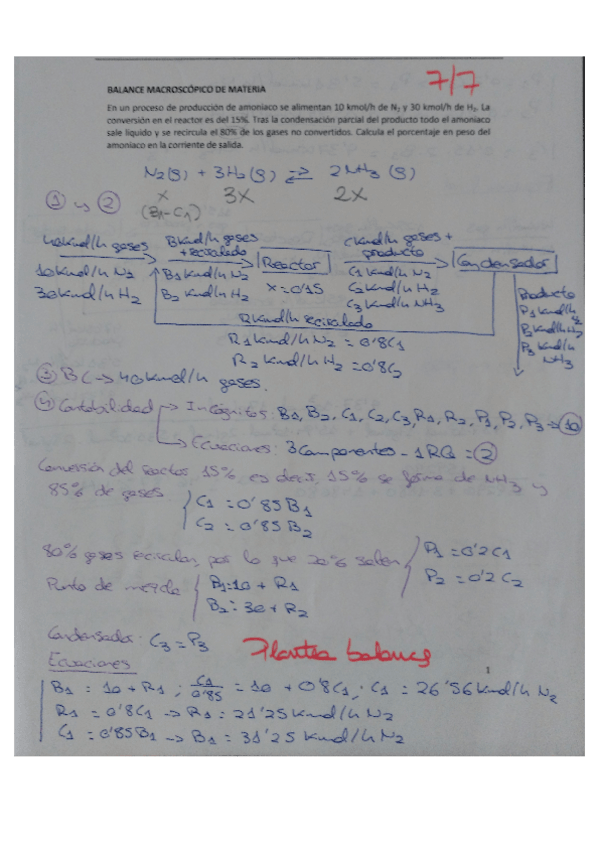 7/7
BALANCE MACROSCÓPICO DE MATERIA
En un proceso de producción de amoniaco se alimentan 10 kmol/h de N₂ y 30 kmol/h de H₂. La
conversión en el reactor es del 15%. Tras la condensación parcial del producto todo el amoniaco
sale líquido y se recircula el 80% de los gases no convertidos. Calcula el porcentaje en peso del
amoniaco en la corriente de salida.
N₂(g) + 3H₂(g) ⇄ 2NH₃ (g)
① y ② x 3x 2x
(B₁-C₁)
40kmol/h gases
10kmol/h N₂
30kmol/h H₂
B kmol/h gases
+ reciclado
B₁ kmol/h N₂
B₂ kmol/h H₂
Reactor
x=0'15
C kmol/h gases +
producto
C₁ kmol/h N₂
C₂ kmol/h H₂
C₃ kmol/h NH₃
Condensador
Producto
P₁ kmol/h N₂
P₂ kmol/h H₂
P₃ kmol/h
NH₃
R kmol/h reciclado
R₁ kmol/h N₂ = 0'8C₁
R₂ kmol/h H₂ = 0'8C₂
③ BC → 40 kmol/h gases.
④ Contabilidad → Incógnitas: B₁, B₂, C₁, C₂, C₃, R₁, R₂, P₁, P₂, P₃ ⇒ 10
→ Ecuaciones: 3 componentes - 1RQ = ②
Conversión del reactor 15% es decir, 15% se forma de NH₃ y
85% de gases
C₁ = 0'85B₁
C₂ = 0'85B₂
80% gases recirculan, por lo que 20% salen
P₁ = 0'2C₁
P₂ = 0'2C₂
Punto de mezcla
B₁ = 10 + R₁
B₂ = 30 + R₂
Condensador: C₃ = P₃
Plantea balances
Ecuaciones
1
B₁ = 10 + R₁ ; C₁/0'85 = 10 + 0'8C₁ ; C₁ = 26'56 kmol/h N₂
R₁ = 0'8C₁ → R₁ = 21'25 kmol/h N₂
C₁ = 0'85B₁ → B₁ = 31'25 kmol/h N₂